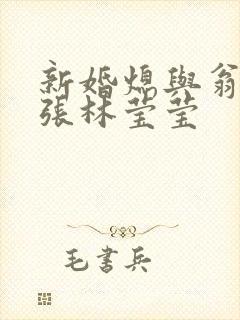 新婚熄與翁
張林莹莹
毛書兵